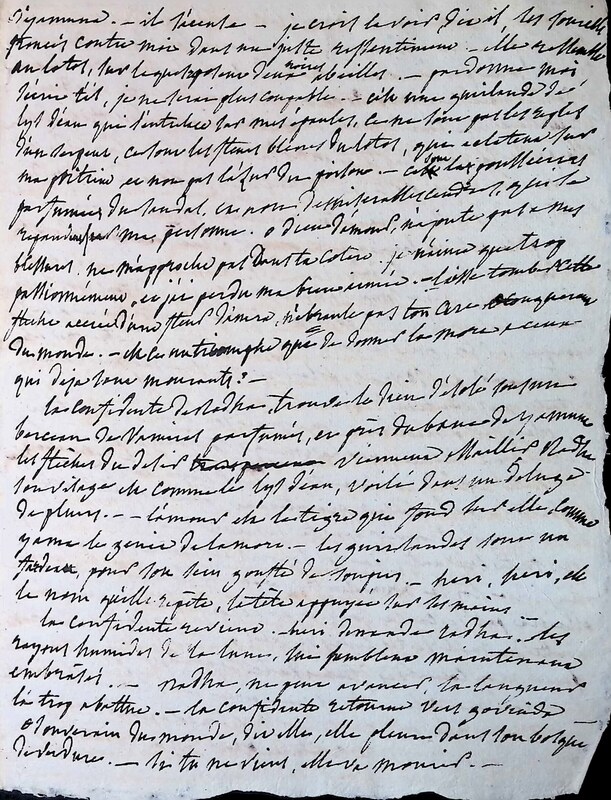 d'yamuna. – il s'écrie – je crois la voir dit il, les sourcils
froncés contre moi dans un juste ressentiment – elle ressemble
au lotos, sur lequel posent deux noires abeilles. – pardonne moi
je ne serai plus coupable. – c'est une guirlande de
lys d'eau qui s'entrelace sur mes épaules, ce ne sont pas les replis
d'un serpent, ce sont les fleurs bleues du lotos, qui éclatent sur
ma poitrine, et non pas l'azur du poison – ce sont les poussières
parfumées du sandal, et non des misérables cendres, qui sont
répandues sur ma personne. o dieu d'amour, n'ajoute pas à mes
blessures. ne m'approche pas dans ta colere. je n'aime que trop
passionnément, et j'ai perdu ma bien aimée. – laisse tomber cette
fleche acérée d'une fleur d'amra, n'ébranle pas ton arc conquerant
du monde. – est ce un triomphe que de donner la mort a ceux
qui deja sont mourants ? –
la confidente de Radha, trouve le dieu désolé sous un
berceau de Vaniras parfumés, et près du banc de yamuna
les fleches du desir viennent assaillir Radha
son visage est comme le lys d'eau, voilé dans un deluge
de pleurs. – l'amour est le tigre qui fond sur elle, comme
yama le genie de la mort. – les guirlandes sont un
fardeau, pour son sein gonflé de soupirs. – heri, heri, est
le nom qu'elle répète, la tête appuyée sur ses mains –
la confidente revient. heri demande radha. – les
rayons humides de la lune, lui semblent maintenant
embrasés. – Radha, ne peut avancer, la langueur
l'a trop abattue. – la confidente retourne vers govinda
o souverain du monde, dit elle, elle pleure dans son bosquet
de verdure. – si tu ne viens, elle va mourir. –